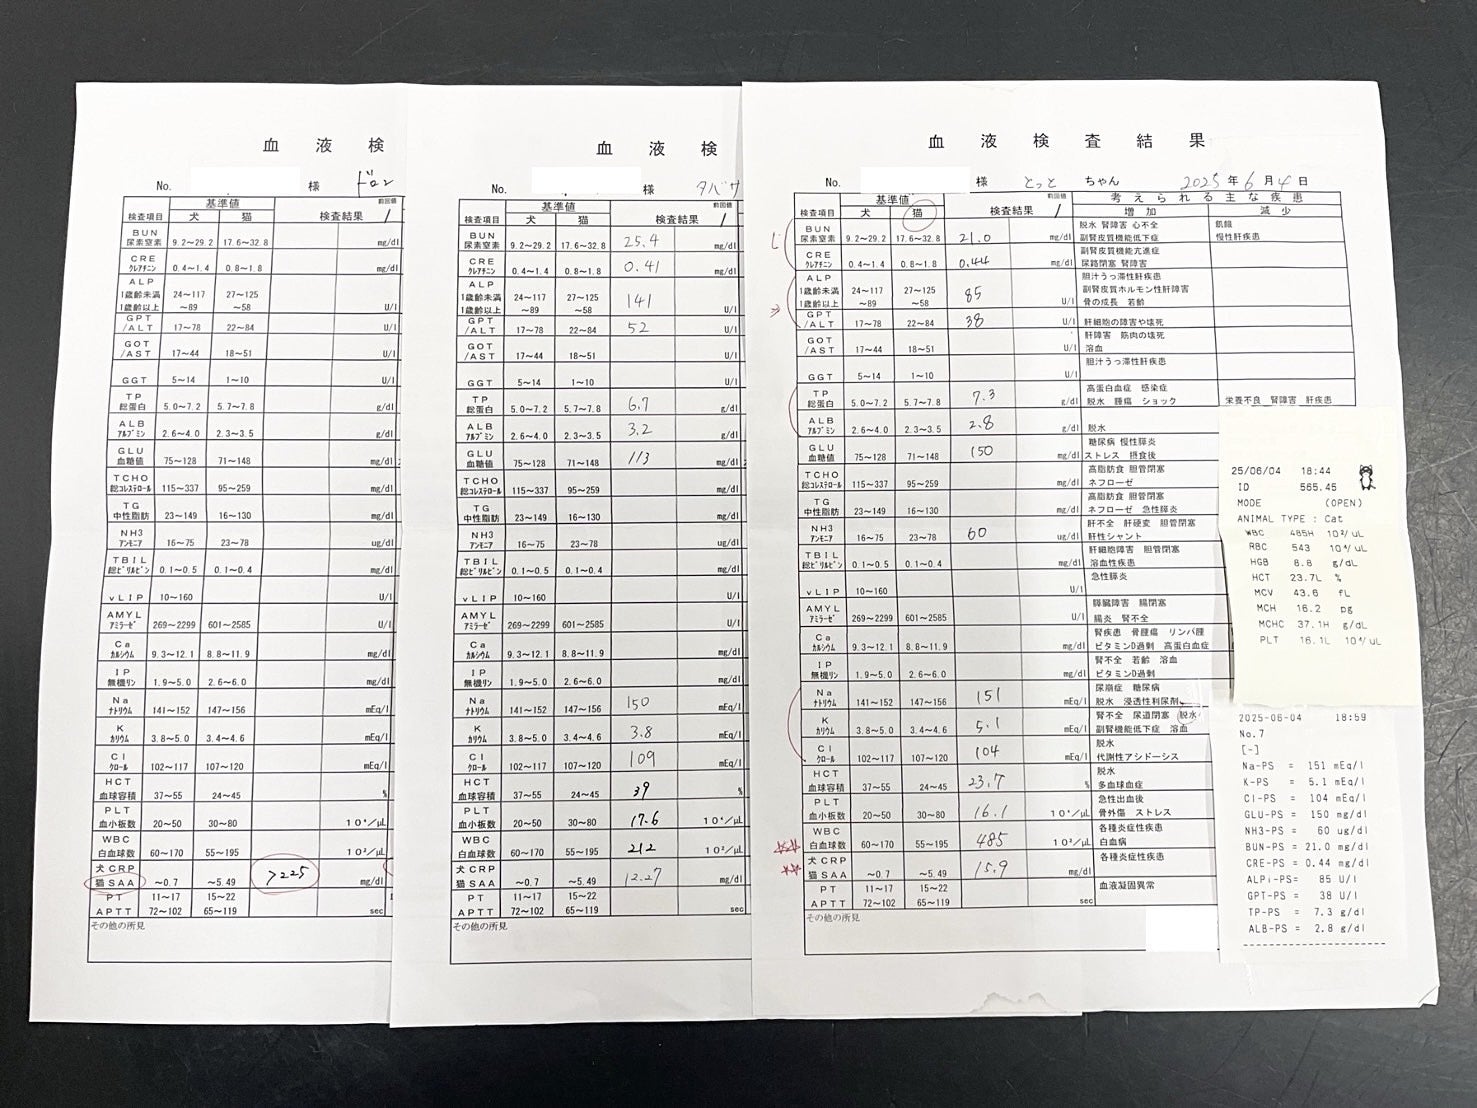 血 液 検
No. 様 ドロン
検査項目 基準値 検査結果 前回値
犬 猫
BUN 尿素窒素 9.2~29.2 17.6~32.8 mg/dl
CRE クレアチニン 0.4~1.4 0.8~1.8 mg/dl
ALP
1歳齢未満 24~117 27~125
1歳齢以上 ~89 ~58 U/l
GPT /ALT 17~78 22~84 U/l
GOT /AST 17~44 18~51
GGT 5~14 1~10 U/l
TP 総蛋白 5.0~7.2 5.7~7.8 g/dl
ALB アルブミン 2.6~4.0 2.3~3.5 g/dl
GLU 血糖値 75~128 71~148 mg/dl
TCHO 総コレステロール 115~337 95~259 mg/dl
TG 中性脂肪 23~149 16~130 mg/dl
NH3 アンモニア 16~75 23~78 ug/dl
TBIL 総ビリルビン 0.1~0.5 0.1~0.4 mg/dl
vLIP 10~160 U/l
AMYL アミラーゼ 269~2299 601~2585 U/l
Ca カルシウム 9.3~12.1 8.8~11.9 mg/dl
IP 無機リン 1.9~5.0 2.6~6.0 mg/dl
Na ナトリウム 141~152 147~156 mEq/l
K カリウム 3.8~5.0 3.4~4.6 mEq/l
Cl クロール 102~117 107~120 mEq/l
HCT 血球容積 37~55 24~45 %
PLT 血小板数 20~50 30~80 10⁴/μL
WBC 白血球数 60~170 55~195 10²/μL
犬CRP 猫SAA ~0.7 ~5.49 >225 mg/dl
PT 11~17 15~22
APTT 72~102 65~119 sec
その他の所見
血 液 検
No. 様 タバサ
検査項目 基準値 検査結果 前回値
犬 猫
BUN 尿素窒素 9.2~29.2 17.6~32.8 25.4 mg/dl
CRE クレアチニン 0.4~1.4 0.8~1.8 0.41 mg/dl
ALP
1歳齢未満 24~117 27~125 141
1歳齢以上 ~89 ~58 U/l
GPT /ALT 17~78 22~84 52 U/l
GOT /AST 17~44 18~51
GGT 5~14 1~10 U/l
TP 総蛋白 5.0~7.2 5.7~7.8 6.7 g/dl
ALB アルブミン 2.6~4.0 2.3~3.5 3.2 g/dl
GLU 血糖値 75~128 71~148 113 mg/dl
TCHO 総コレステロール 115~337 95~259 mg/dl
TG 中性脂肪 23~149 16~130 mg/dl
NH3 アンモニア 16~75 23~78 ug/dl
TBIL 総ビリルビン 0.1~0.5 0.1~0.4 mg/dl
vLIP 10~160 U/l
AMYL アミラーゼ 269~2299 601~2585 U/l
Ca カルシウム 9.3~12.1 8.8~11.9 mg/dl
IP 無機リン 1.9~5.0 2.6~6.0 mg/dl
Na ナトリウム 141~152 147~156 150 mEq/l
K カリウム 3.8~5.0 3.4~4.6 3.8 mEq/l
Cl クロール 102~117 107~120 109 mEq/l
HCT 血球容積 37~55 24~45 39 %
PLT 血小板数 20~50 30~80 17.6 10⁴/μL
WBC 白血球数 60~170 55~195 212 10²/μL
犬CRP 猫SAA ~0.7 ~5.49 12.27 mg/dl
PT 11~17 15~22
APTT 72~102 65~119 sec
その他の所見
血 液 検 査 結 果
No. 様 とっと ちゃん 2025年6月4日
検査項目 基準値 検査結果 前回値 考えられる主な疾患
犬 猫 増加 減少
BUN 尿素窒素 9.2~29.2 17.6~32.8 21.0 mg/dl 脱水 腎障害 心不全 副腎皮質機能低下症 飢餓 慢性肝疾患
CRE クレアチニン 0.4~1.4 0.8~1.8 0.44 mg/dl 副腎皮質機能亢進症 尿路閉塞 腎障害
ALP 胆汁うっ滞性肝疾患
1歳齢未満 24~117 27~125 85 副腎皮質ホルモン性肝障害
1歳齢以上 ~89 ~58 U/l 骨の成長 若齢
GPT /ALT 17~78 22~84 38 U/l 肝細胞の障害や壊死
GOT /AST 17~44 18~51 U/l 肝障害 筋肉の壊死 溶血
GGT 5~14 1~10 U/l 胆汁うっ滞性肝疾患
TP 総蛋白 5.0~7.2 5.7~7.8 7.3 g/dl 高蛋白血症 感染症 脱水 腫瘍 ショック 栄養不良 腎障害 肝疾患
ALB アルブミン 2.6~4.0 2.3~3.5 2.8 g/dl 脱水
GLU 血糖値 75~128 71~148 150 mg/dl 糖尿病 慢性膵炎 ストレス 摂食後
TCHO 総コレステロール 115~337 95~259 mg/dl 高脂肪食 胆管閉塞 ネフローゼ
TG 中性脂肪 23~149 16~130 mg/dl 高脂肪食 胆管閉塞 ネフローゼ 急性膵炎
NH3 アンモニア 16~75 23~78 60 ug/dl 肝不全 肝硬変 胆管閉塞 肝性シャント
TBIL 総ビリルビン 0.1~0.5 0.1~0.4 mg/dl 肝細胞障害 胆管閉塞 溶血性疾患
vLIP 10~160 U/l 急性膵炎
AMYL アミラーゼ 269~2299 601~2585 U/l 膵臓障害 腸閉塞 腸炎 腎不全
Ca カルシウム 9.3~12.1 8.8~11.9 mg/dl 腎疾患 骨腫瘍 リンパ腫 ビタミンD過剰 高蛋白血症
IP 無機リン 1.9~5.0 2.6~6.0 mg/dl 腎不全 若齢 溶血 ビタミンD過剰
Na ナトリウム 141~152 147~156 151 mEq/l 尿崩症 糖尿病 脱水 浸透性利尿剤
K カリウム 3.8~5.0 3.4~4.6 5.1 mEq/l 腎不全 尿道閉塞 脱水 副腎機能低下症 溶血
Cl クロール 102~117 107~120 104 mEq/l 脱水 代謝性アシドーシス
HCT 血球容積 37~55 24~45 23.7 % 脱水 多血球血症
PLT 血小板数 20~50 30~80 16.1 10⁴/μL 急性出血後 骨外傷 ストレス
WBC 白血球数 60~170 55~195 485 10²/μL 各種炎症性疾患 白血病
犬CRP 猫SAA ~0.7 ~5.49 15.9 mg/dl 各種炎症性疾患
PT 11~17 15~22 血液凝固異常
APTT 72~102 65~119 sec
その他の所見
25/06/04 18:44
ID 565.45
MODE (OPEN)
ANIMAL TYPE : Cat
WBC 485H 10²/uL
RBC 543 10⁴/uL
HGB 8.8 g/dL
HCT 23.7L %
MCV 43.6 fL
MCH 16.2 pg
MCHC 37.1H g/dL
PLT 16.1L 10⁴/uL
2025-06-04 18:59
No.7
[-]
Na-PS = 151 mEq/l
K-PS = 5.1 mEq/l
Cl-PS = 104 mEq/l
GLU-PS = 150 mg/dl
NH3-PS = 60 ug/dl
BUN-PS = 21.0 mg/dl
CRE-PS = 0.44 mg/dl
ALPi-PS= 85 U/l
GPT-PS = 38 U/l
TP-PS = 7.3 g/dl
ALB-PS = 2.8 g/dl